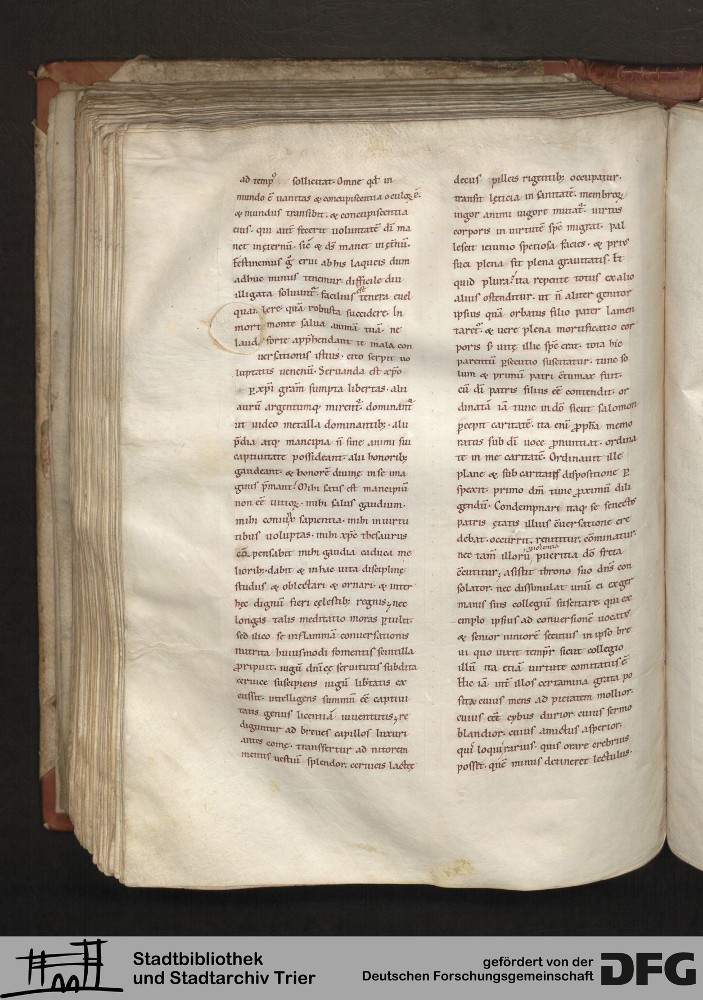 ad temp᷒ sollicitat. Omne qd̄ in
mundo ē uanitas & concupiscentia oculoꝝ ē.
& mundus transibit. & concupiscentia
eius. qui aut̄ fecerit uoluntatē dī ma
net inęternū. sic̄ & ds̄ manet inęt̄nū.
Festinemus ḡ erui ab his laqueis dum
adhuc minus tenemur. difficile diu
illigata soluunt᷑. facilius est tenera euel
lere quā robusta succidere. In
monte salua animā tuā. ne
forte app̄hendant te mala con
uersationis istius. cito serpit uo
luptatis uenenū. Seruanda est xp̄o
ꝓ xp̄i grām sumpta libertas. alii
aurū argentumq; mirent᷑. dominant᷑
ut uideo metalla dominantib;. alii
p̄dia atq; mancipia si sine animi sui
captiuitate possideant. alii honorib;
gaudeant. & honorē diuinę in se ima
ginis p̄mant. Mihi satis est mancipiū
non eē uitioꝝ. mihi salus gaudium.
mihi sapientia. mihi inuirtu
tibus uoluptas. mihi xp̄c thesaurus
cō pensabit mihi gaudia caduca me
liorib;. dabit & in hac uita disciplinę
studiis & oblectari & ornari. & inter
hęc dignū fieri cęlestib; regnis; nec
longas talis meditatio moras p̄tulit.
sed ilico se inflammā conuersationis
nutrita huiusmodi fomentis scintilla
ꝓripuit. iugū dn̄icę seruitutis subdita
ceruice suscipiens iugū lib̄tatis ex
cussit. intelligens summū eē captiui
tatis genus licentiā iuuentutis; re
diguntur ad breues capillos luxuri
antes comę. transfertur ad nitorem
mentis uestiū splendor. ceruicis lactęę
decus pilleis rigentib; occupatur.
transit leticia in sanitatē. membroꝝ
uigor animi uigore mutat᷑. uirtus
corporis in uirtutē spc̄ migrat. pal
lescit ieiunio speciosa facies. & prius
suci plena fit plena grauitatis. Et
quid plura? ita repente totus ex alio
alius ostenditur. ut n̄ aliter genitor
ipsius quā orbatus filio pater lamen
taret᷑. & uere plena mortificatio cor
poris s; uitę ille spc̄ erat. tota hic
parentū ꝑsecutio suscitatur. tunc so
lum & primū patri c̄tumax fuit.
cū dī patris filius eē contendit. or
dinatā iā tunc in dō sicut salomon
p̄cepit caritatē. ita eni ꝓpha memo
ratus sub dī uoce ꝓnuntiat. ordina
te in me caritatē. Ordinauit ille
plane & sub caritatis dispositione ꝑ
spexit. primo dm̄ tunc ꝓximū dili
gendū. Condempnari itaq; se senectus
patris ętatis illius c̄uersatione cre
debat. occurrit. renititur. cōminatur.
nec tam̄ illorū uiolentia pueritia dō freta
c̄cutitur; assistit throno suo dn̄s con
solator. nec dissimulat unū ei ex ger
manis suis collegiū suscitare. qui ex
emplo ipsius ad conuersionē uocat᷑
& senior iuniorē secutus in ipso bre
ui quo uixit tempr̄ sicut collegio
illū ita etiā uirtute comitatus ē
Hic iā int̄ illos certamina grata po
sita cuius mens ad pietatem mollior.
cuius eēt cybus durior. cuius sermo
blandior. cuius amictus asperior.
quis loqui rarius. quis orare crebrius
posset. quē minus detineret lectulus.
Stadtbibliothek
und Stadtarchiv Trier
gefördert von der
Deutschen Forschungsgemeinschaft
DFG